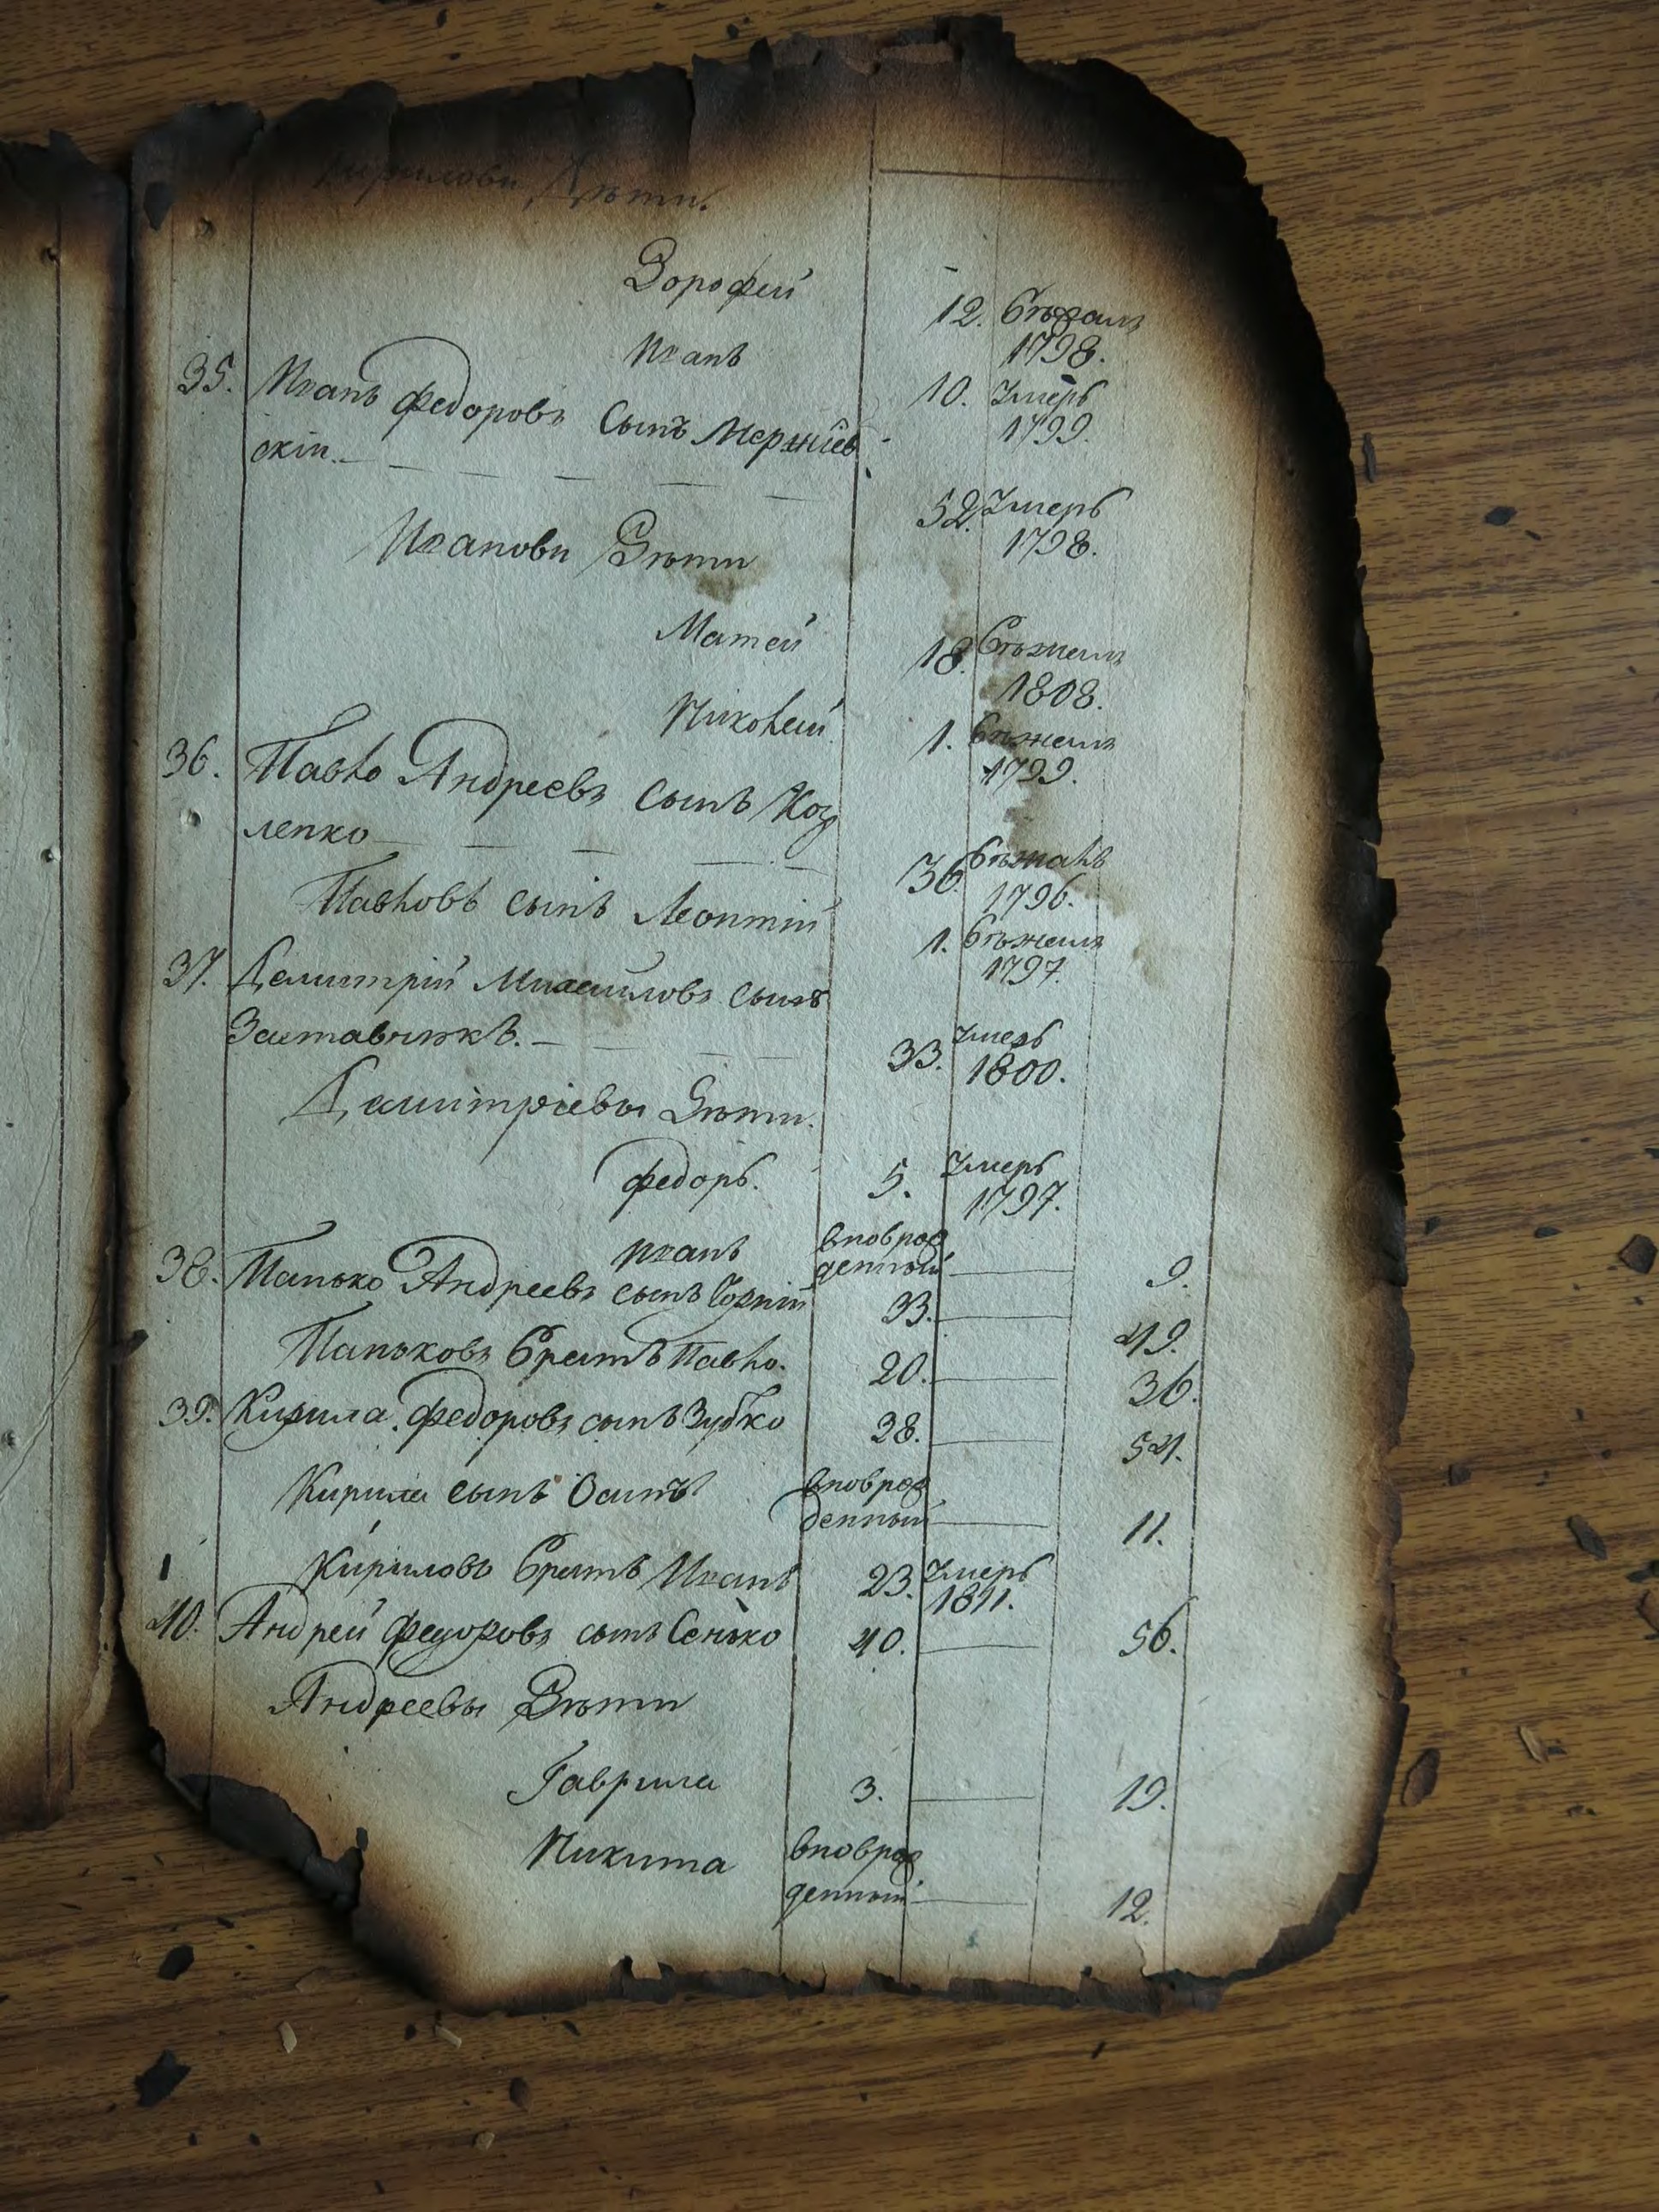 Кирилови Дѣти.
Дорофей 12. Бѣжалъ
1798.
Иванъ 10. Умеръ
1799.
35. Иванъ Федоровъ Сынъ Мержиев
скій 52. Умеръ
1798.
Иванови Дѣти
Матей 18. Бѣжалъ
1808.
Николай 1. Бѣжалъ
1799.
36. Павло Андреевъ Сынъ Коз
ленко 36. Бѣжалъ
1796.
Павловъ сынъ Леонтій 1. Бѣжалъ
1797.
37. Демитрій Михайловъ сынъ
33. Умеръ
1800.
Дамитріевы Дѣти.
Федоръ. 5. Умеръ
1797.
Иванъ вновърож
денный 9.
38. Панько Андреевъ сынъ 33. 49.
Паньковъ Братъ Павло. 20. 36.
39. Кирила Федоровъ сынъ Зубко 38. 54.
Кирила сынъ Осипъ вновърож
денный 11.
Кириловъ Братъ Иванъ 23. Умеръ
1811.
40. Андрей Федоровъ сынъ Сенько 40. 56.
Андреевы Дѣти
Гаврила 3. 19.
Никита вновърож
денный 12.